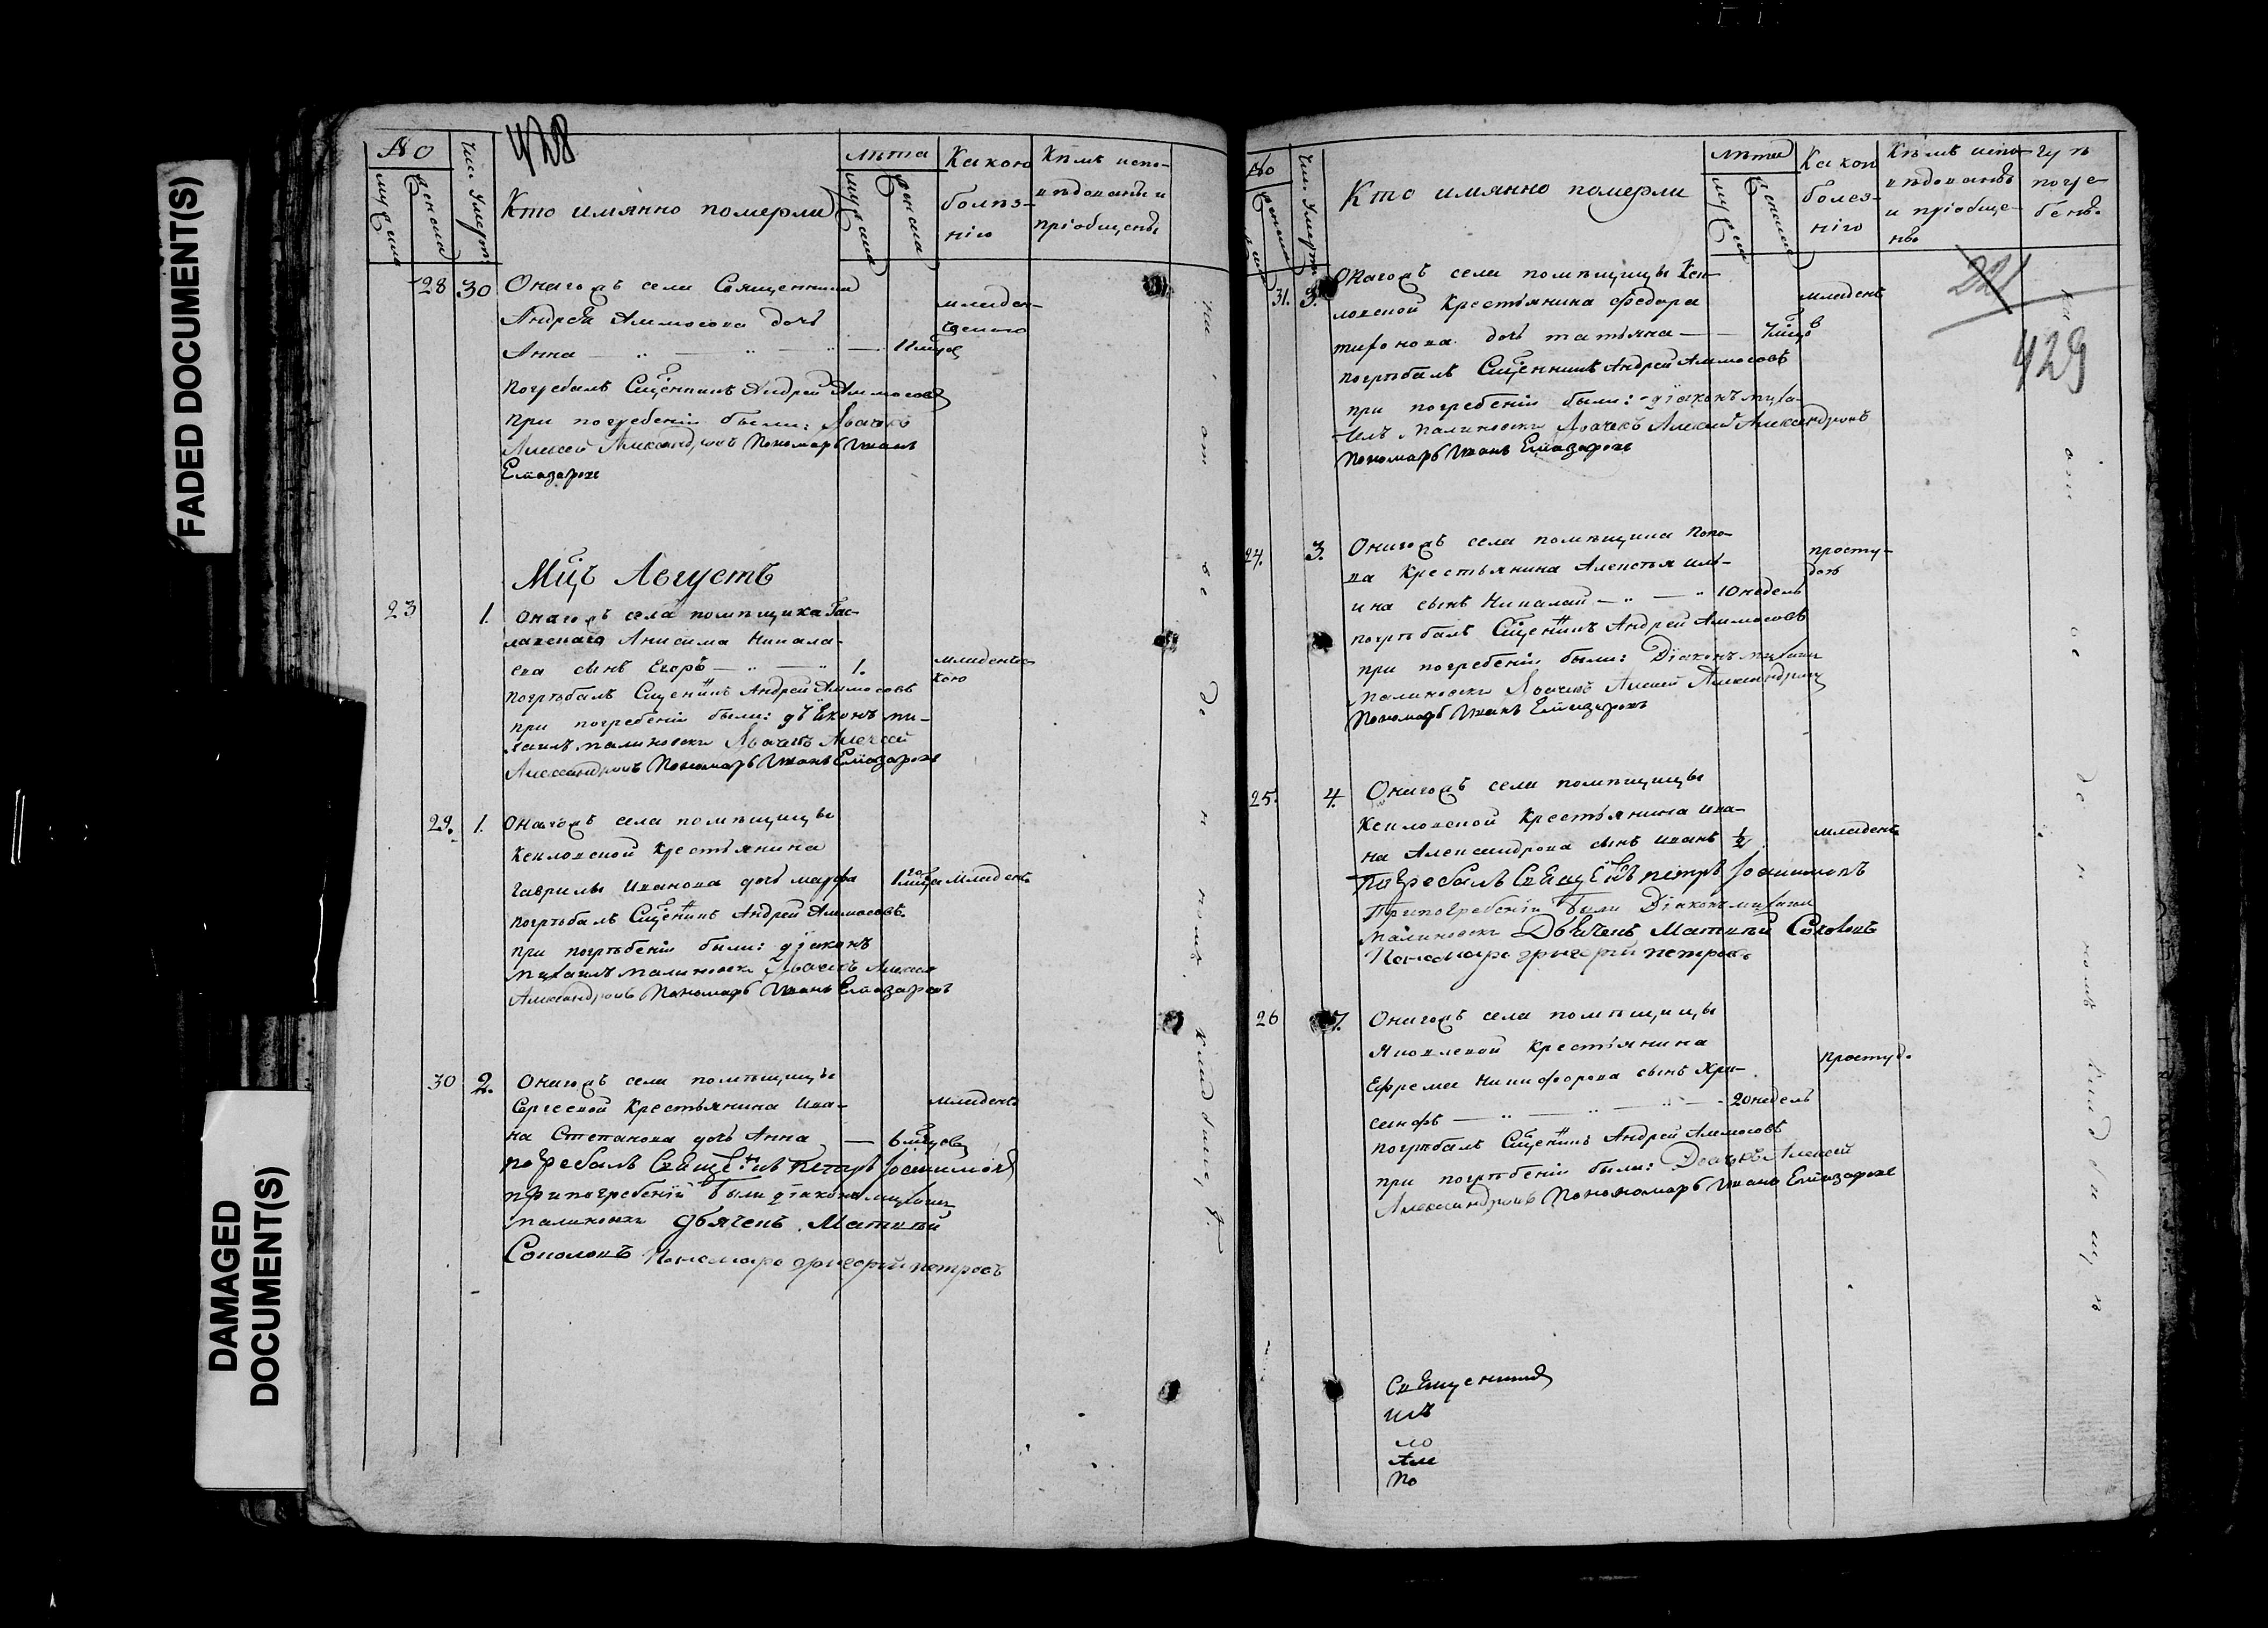 FADED DOCUMENT(S)
DAMAGED
DOCUMENT(S)
428
№
мужска
женска
Чис. Умерш.
Кто имянно померли
лѣта
мужска
женска
Какою
болѣз-
нію
Кѣмъ испо-
вѣдованы и
пріобщены
28 30 Онагожъ села Священника
Андрея Аммосова дочь
Анна 11 мцов
младен-
ческою
Погребалъ Сщенникъ Андрей Аммосовъ
при погребеніи были: Дьячекъ
Алексей Александровъ Пономарь Иванъ
Елиазаровъ
Мцъ Августъ
23 1. Онагожъ села помѣщика
Анисима Никала-
ева сынъ Егоръ 1.
младенчес-
кою
погрѣбалъ Сщенникъ Андрей Аммосовъ
при погребеніи были: дьяконъ ми-
хаилъ малиновски Дьячекъ Алексей
Александровъ Пономарь Иванъ Елиазаровъ
29. 1. Онагожъ села помѣщицы
Крестьянина
Гаврилы Иванова дочь марфа 1 младенч.
погрѣбалъ Сщенникъ Андрей Аммосовъ
при погрѣбеніи были: діаконъ
михаилъ малиновски Дьячекъ Алексей
Александровъ Пономарь Иванъ Елиазаровъ
30 2. Онагожъ села помѣщицы
Сергеевой Крестьянина Ива-
на Степанова дочь Анна 6 мцов
младенч.
погребалъ Священникъ петръ
при погребеніи были діаконъ михаилъ
малиновски дьячекъ Матвѣй
Соколовъ Пономарь григорий петровъ
на отведенномъ кладбище
№
женска
Чис. Умерш.
Кто имянно померли
лѣта
мужска
женска
Какою
болез-
нію
Кѣмъ испо-
вѣдованъ
и пріобще-
нъ
Гдѣ
погре-
бенъ.
221
429
31. 3. Онагожъ села помѣщицы
Крестьянина Федора
дочь татьяна 7 мцов
младенч
погрѣбалъ Сщенникъ Андрей Аммосовъ
при погребеніи были: діаконъ миха-
илъ малиновски Дьячекъ Алексей Александровъ
Пономарь Иванъ Елиазаровъ
24. 3. Онагожъ села помѣщика Попо-
ва Крестьянина Алексея Иль-
ина сынъ Николай 10 недель
просту-
дою
погрѣбалъ Сщенникъ Андрей Аммосовъ
при погребеніи были: Діаконъ михаилъ
малиновски Дьячекъ Алексей Александровъ
Пономарь Иванъ Елиазаровъ
25. 4. Онагожъ села помѣщицы
Крестьянина Ива-
на Александрова сынъ иванъ 1/2
младенч.
Погребалъ Священикъ петръ
При погребеніи были Діаконъ михаилъ
малиновски Дьячекъ Матвѣй Соколовъ
Пономарь григорий петровъ
26 7. Онагожъ села помѣщицы
Яковлевой Крестьянина
Ефрема Никифорова сынъ Хри-
санфъ 20 недель
простуд.
погрѣбалъ Сщенникъ Андрей Аммосовъ
при погрѣбеніи были: Дьячекъ Алексей
Александровъ Пономарь Иванъ Елиазаровъ
на отведенномъ кладбищѣ
Священникъ
илъ
ло
Але
По